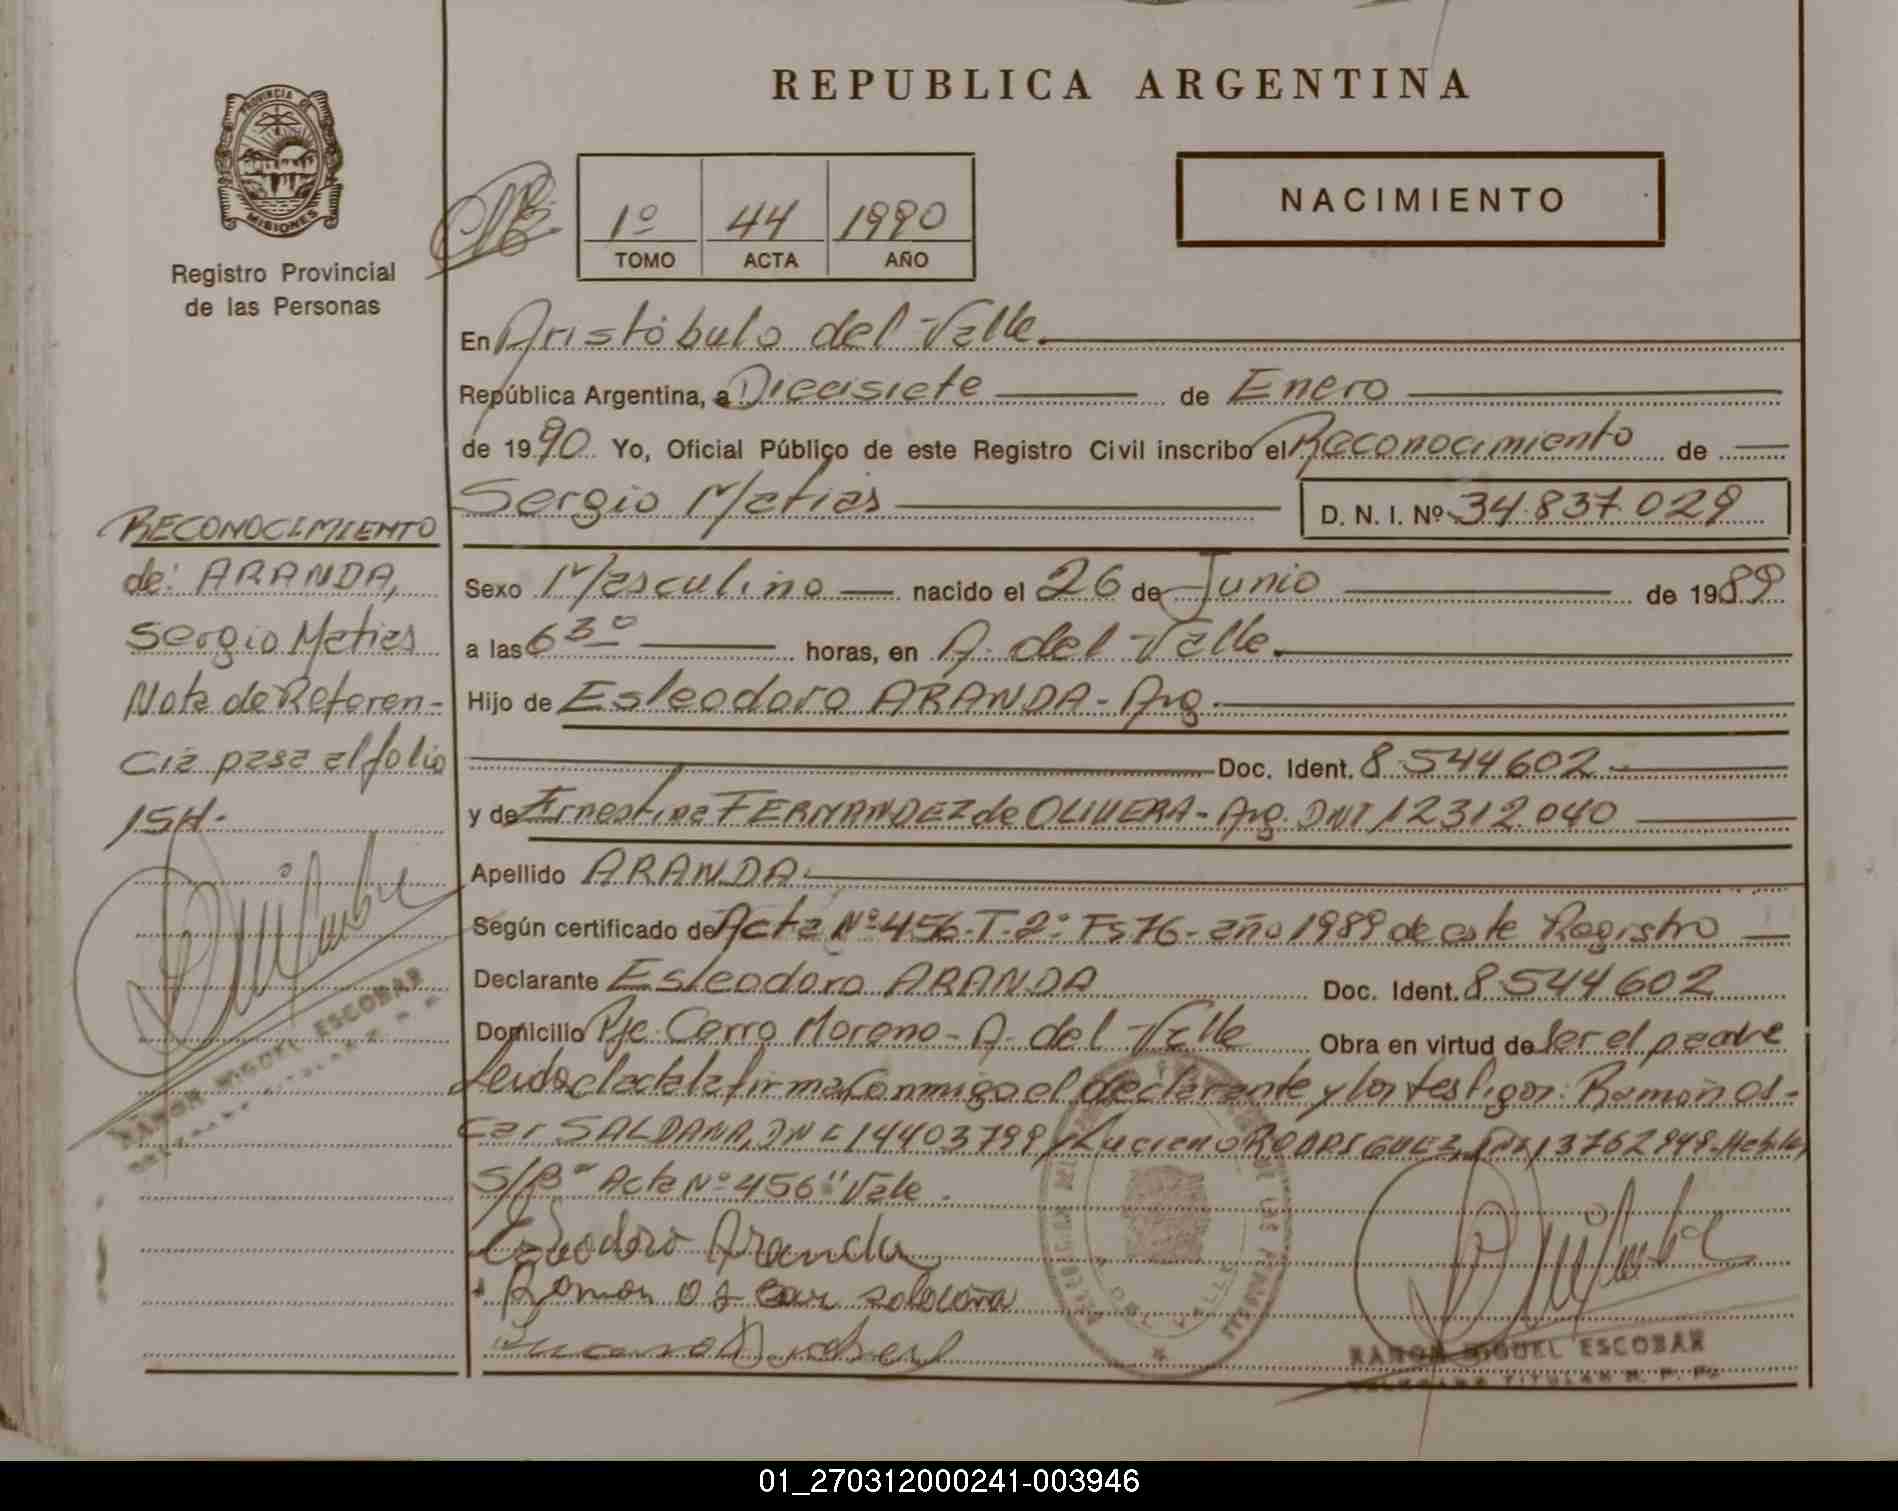 REPUBLICA ARGENTINA
PROVINCIA DE
MISIONES
Registro Provincial
de las Personas
1º 44 1990
TOMO ACTA AÑO
NACIMIENTO
En Aristóbulo del Valle.
República Argentina, a Diecisiete de Enero
de 1990 Yo, Oficial Público de este Registro Civil inscribo el Reconocimiento de
Sergio Matias D. N. I. Nº 34.837.029
Sexo Masculino nacido el 26 de Junio de 1989
a las 6 30 horas, en A. del Valle.
Hijo de Esleodoro ARANDA - Arg.
Doc. Ident. 8.544602
y de Ernestina FERNANDEZ de OLIVERA - Arg. DNI 12312.040
Apellido ARANDA
Según certificado de Acta Nº 456-T-2º Fs 76- año 1989 de este Registro
Declarante Esleodoro ARANDA Doc. Ident. 8.544602
Domicilio Pje. Cerro Moreno - A. del Valle Obra en virtud de ser el padre
Leida el acta la firma conmigo el declarante y los testigos: Ramón Os-
car SALDAÑA, DNI 14403799 y Luciano RODRIGUEZ, DNI 13762948.
S/B "Acta Nº 456" Vale.
Esleodoro Aranda
Ramon oscar
RAMON MIGUEL ESCOBAR
DELEGADO TITULAR R. P. P.
RECONOCIMIENTO
de: ARANDA,
Sergio Matias
Nota de Referen-
cia pasa al folio
154.
RAMON MIGUEL ESCOBAR
01_270312000241-003946